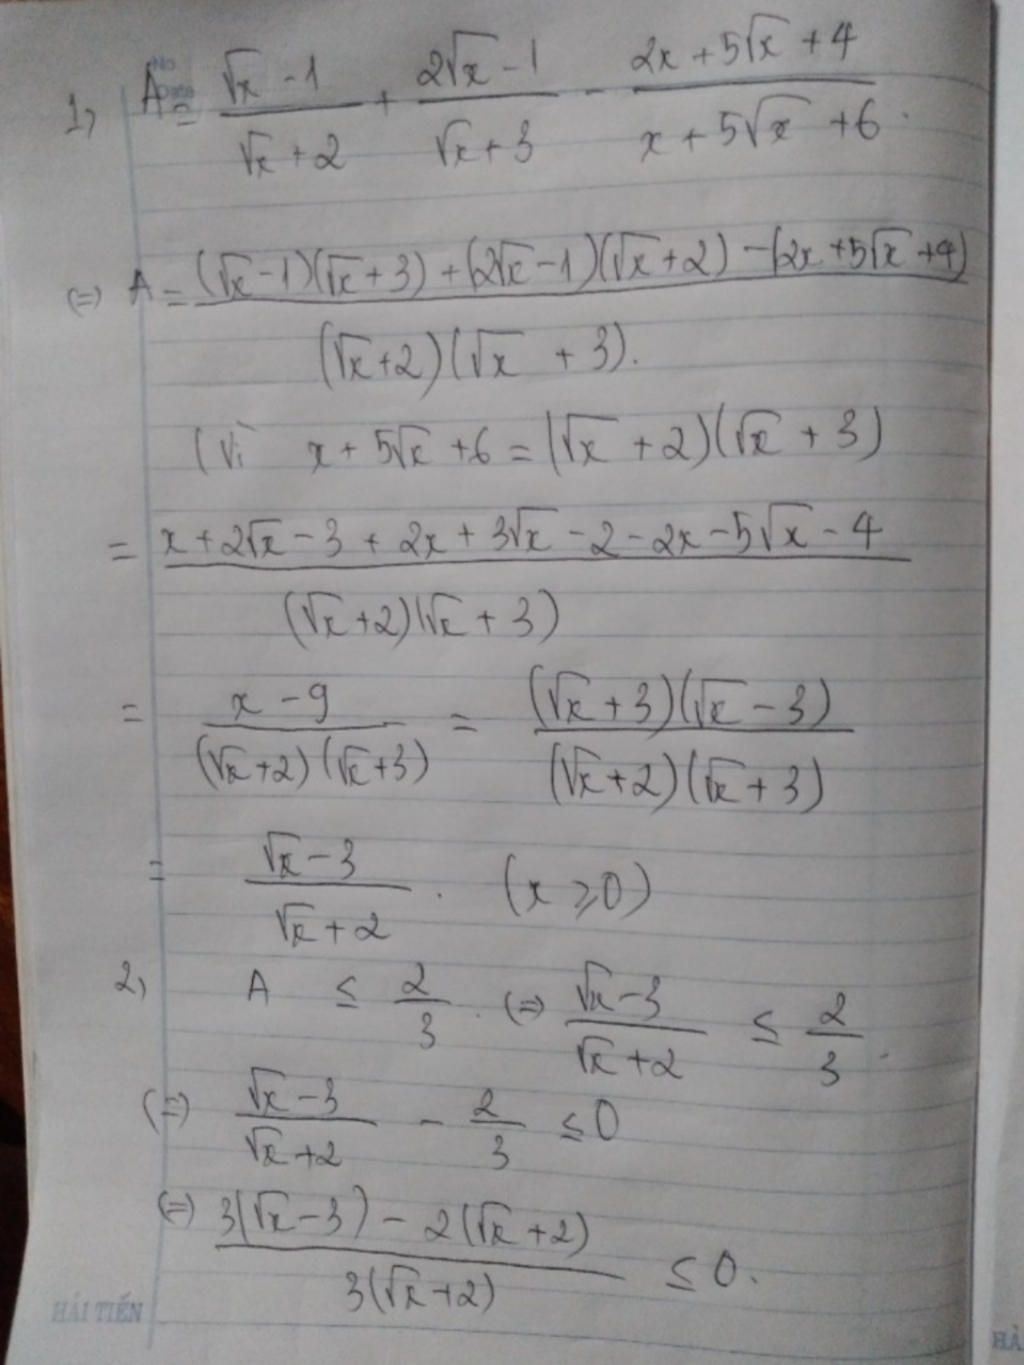 No
Date
1, A = (√x - 1)/(√x + 2) + (2√x - 1)/(√x + 3) - (2x + 5√x + 4)/(x + 5√x + 6).
(=) A = ((√x - 1)(√x + 3) + (2√x - 1)(√x + 2) - (2x + 5√x + 4))/((√x + 2)(√x + 3)).
(Vì x + 5√x + 6 = (√x + 2)(√x + 3)
= (x + 2√x - 3 + 2x + 3√x - 2 - 2x - 5√x - 4)/((√x + 2)(√x + 3))
= (x - 9)/((√x + 2)(√x + 3)) = ((√x + 3)(√x - 3))/((√x + 2)(√x + 3))
= (√x - 3)/(√x + 2). (x ⩾ 0)
2, A ≤ 2/3. (=) (√x - 3)/(√x + 2) ≤ 2/3.
(=) (√x - 3)/(√x + 2) - 2/3 ≤ 0
(=) (3(√x - 3) - 2(√x + 2))/(3(√x + 2)) ≤ 0.
HẢI TIẾN
HẢ